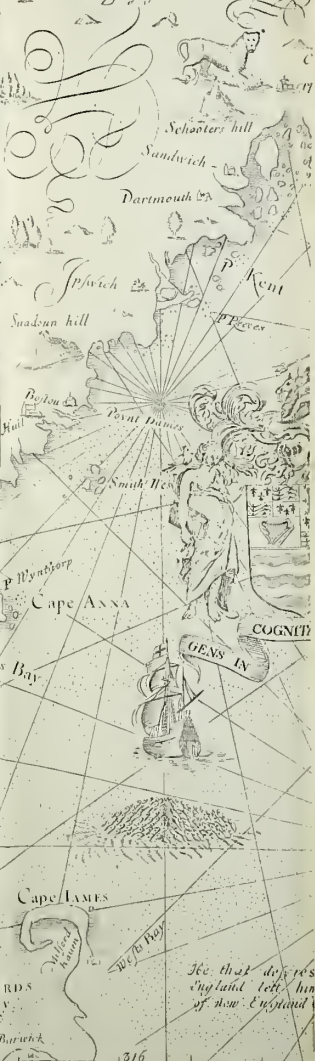 Schooters hill
Sandwich
Dartmouth
P Kent
Ipswich
Snadoun hill
P Travers
Boston
Hull
Poynt Dauies
Smith Iles
P Wynthorp
Cape ANNA
COGNIT
GENS IN
s Bay
Cape IAMES
Milford hauen
West Bay
He that desyres
RDS
England lett him
of new England
Barwick
1616